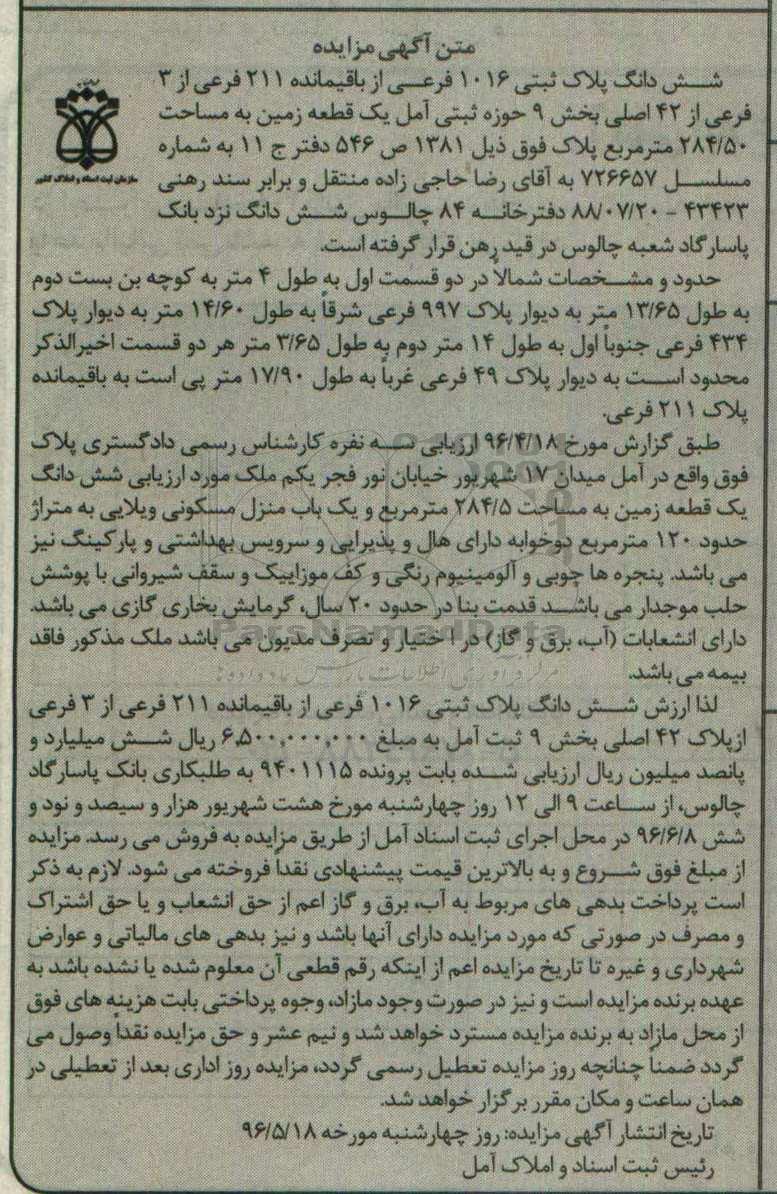 متن آگهی مزایده
شش دانگ پلاک ثبتی ۱۰۱۶ فرعی از باقیمانده ۲۱۱ فرعی از ۳
فرعی از ۴۲ اصلی بخش ۹ حوزه ثبتی آمل یک قطعه زمین به مساحت
۲۸۴/۵۰ مترمربع پلاک فوق ذیل ۱۳۸۱ ص ۵۴۶ دفتر ج ۱۱ به شماره
مسلسل ۷۲۶۶۵۷ به آقای رضا حاجی زاده منتقل و برابر سند رهنی
۴۳۴۲۳ - ۸۸/۰۷/۲۰ دفترخانه ۸۴ چالوس شش دانگ نزد بانک
پاسارگاد شعبه چالوس در قید رهن قرار گرفته است.
سازمان ثبت اسناد و املاک کشور
حدود و مشخصات شمالاً در دو قسمت اول به طول ۴ متر به کوچه بن بست دوم
به طول ۱۳/۶۵ متر به دیوار پلاک ۹۹۷ فرعی شرقاً به طول ۱۴/۶۰ متر به دیوار پلاک
۴۳۴ فرعی جنوباً اول به طول ۱۴ متر دوم به طول ۳/۶۵ متر هر دو قسمت اخیرالذکر
محدود است به دیوار پلاک ۴۹ فرعی غرباً به طول ۱۷/۹۰ متر پی است به باقیمانده
پلاک ۲۱۱ فرعی.
طبق گزارش مورخ ۹۶/۴/۱۸ ارزیابی سه نفره کارشناس رسمی دادگستری پلاک
فوق واقع در آمل میدان ۱۷ شهریور خیابان نور فجر یکم ملک مورد ارزیابی شش دانگ
یک قطعه زمین به مساحت ۲۸۴/۵ مترمربع و یک باب منزل مسکونی ویلایی به متراژ
حدود ۱۲۰ مترمربع دوخوابه دارای هال و پذیرایی و سرویس بهداشتی و پارکینگ نیز
می باشد. پنجره ها چوبی و آلومینیوم رنگی و کف موزاییک و سقف شیروانی با پوشش
حلب موجدار می باشد قدمت بنا در حدود ۲۰ سال، گرمایش بخاری گازی می باشد.
دارای انشعابات (آب، برق و گاز) در اختیار و تصرف مدیون می باشد ملک مذکور فاقد
بیمه می باشد.
لذا ارزش شش دانگ پلاک ثبتی ۱۰۱۶ فرعی از باقیمانده ۲۱۱ فرعی از ۳ فرعی
ازپلاک ۴۲ اصلی بخش ۹ ثبت آمل به مبلغ ۶,۵۰۰,۰۰۰,۰۰۰ ریال شش میلیارد و
پانصد میلیون ریال ارزیابی شده بابت پرونده ۹۴۰۱۱۱۵ به طلبکاری بانک پاسارگاد
چالوس، از ساعت ۹ الی ۱۲ روز چهارشنبه مورخ هشت شهریور هزار و سیصد و نود و
شش ۹۶/۶/۸ در محل اجرای ثبت اسناد آمل از طریق مزایده به فروش می رسد. مزایده
از مبلغ فوق شروع و به بالاترین قیمت پیشنهادی نقداً فروخته می شود. لازم به ذکر
است پرداخت بدهی های مربوط به آب، برق و گاز اعم از حق انشعاب و یا حق اشتراک
و مصرف در صورتی که مورد مزایده دارای آنها باشد و نیز بدهی های مالیاتی و عوارض
شهرداری و غیره تا تاریخ مزایده اعم از اینکه رقم قطعی آن معلوم شده یا نشده باشد به
عهده برنده مزایده است و نیز در صورت وجود مازاد، وجوه پرداختی بابت هزینه های فوق
از محل مازاد به برنده مزایده مسترد خواهد شد و نیم عشر و حق مزایده نقداً وصول می
گردد ضمناً چنانچه روز مزایده تعطیل رسمی گردد، مزایده روز اداری بعد از تعطیلی در
همان ساعت و مکان مقرر برگزار خواهد شد.
تاریخ انتشار آگهی مزایده: روز چهارشنبه مورخه ۹۶/۵/۱۸
رئیس ثبت اسناد و املاک آمل
ParsNamadData